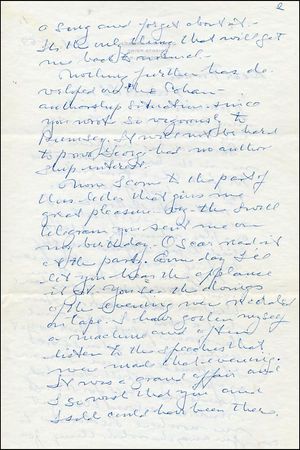 2
a song and forget about it -
It's the only thing that will get
me back to normal -
Nothing further has de-
veloped on the Cohan
authorship situation since
you wrote so vigorously to
Rumsey. It need not be hard
to prove George had no author
ship interest.
Now I come to the part of
this letter that gives me
great pleasure - the swell
telegram you sent me on
my birthday. Oscar read it
at the party. Some day I'll
let you hear the applause
it got. You see the doings
of the evening were recorded
on tape. I have gotten myself
a machine and often
listen to the speeches that
were made that evening.
It was a grand affair and
I so wish that you and
could have been there.